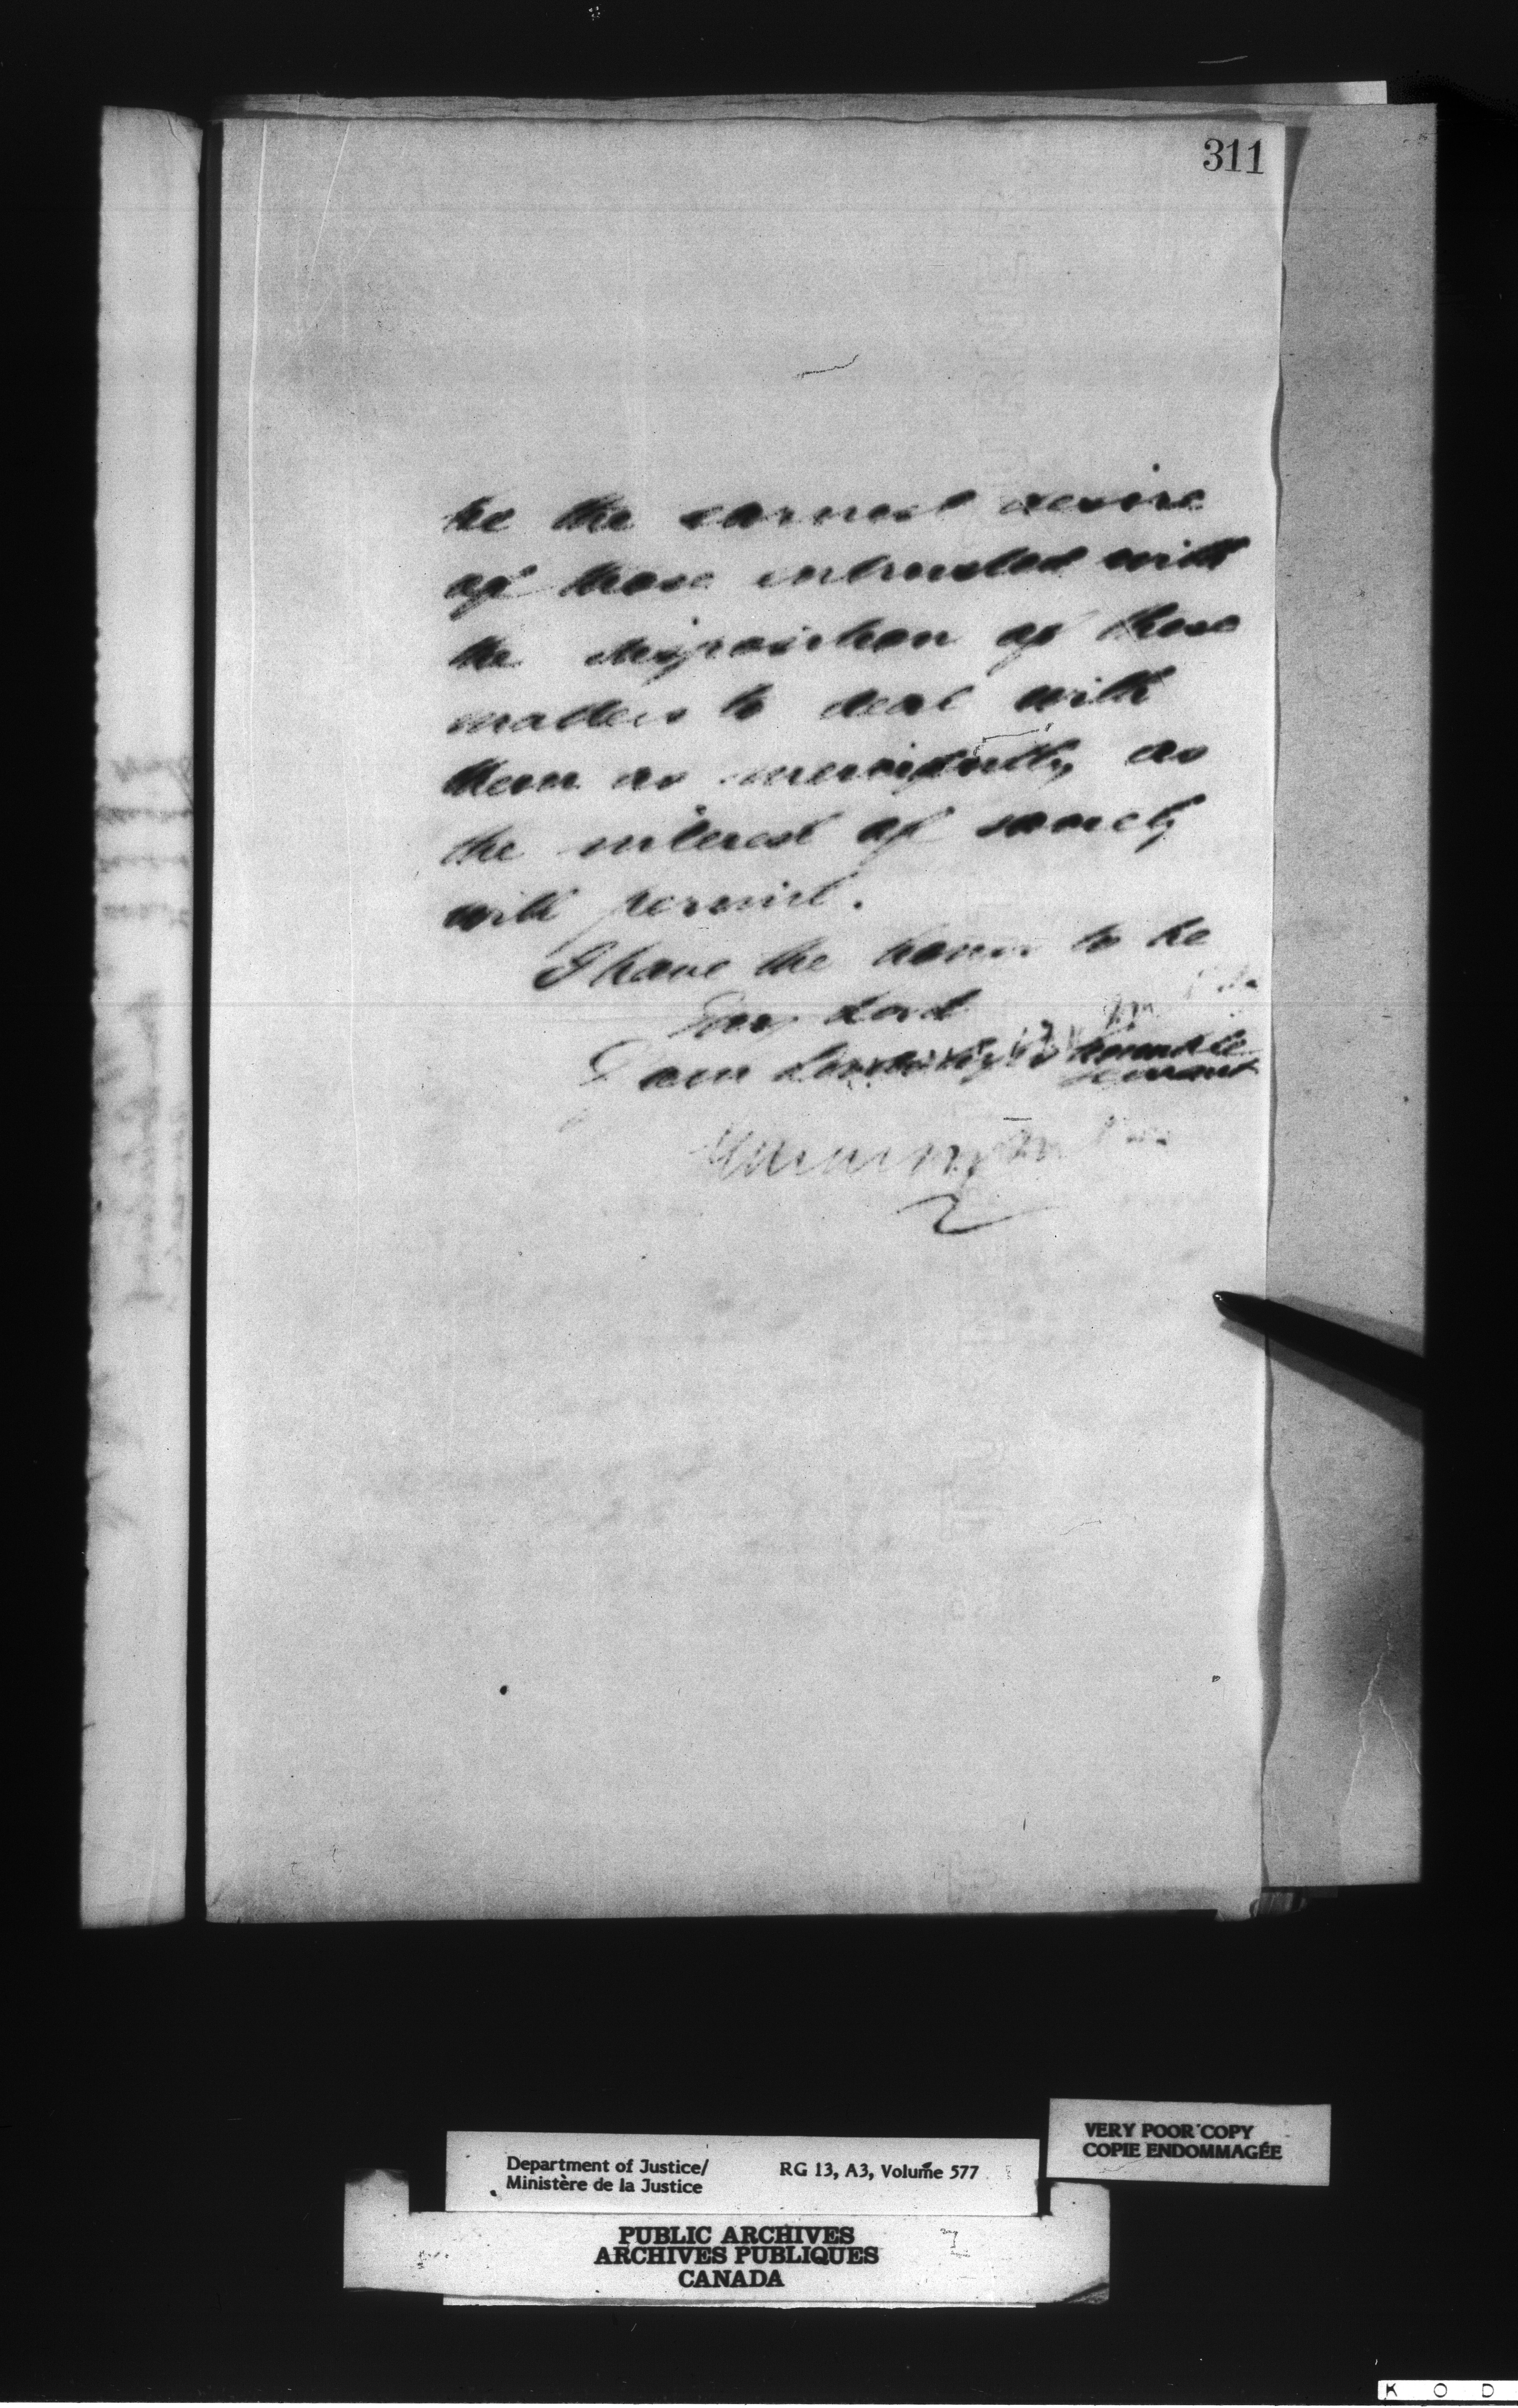 311
be the earnest desire
of those entrusted with
the disposition of these
matters to deal with
them as mercifully as
the interest of society
will permit.
I have the honor to be
My Lord
I am Lordship's humble
servant
VERY POOR COPY
COPIE ENDOMMAGÉE
Department of Justice/ RG 13, A3, Volume 577
Ministère de la Justice
PUBLIC ARCHIVES
ARCHIVES PUBLIQUES
CANADA
K O D